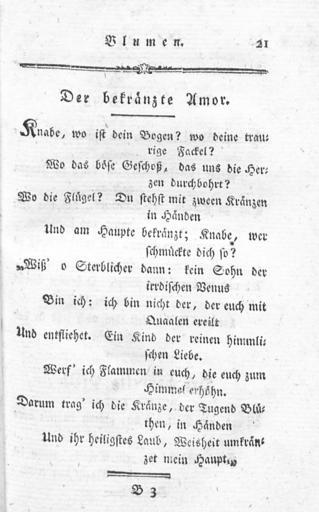 Blumen. 21
Der bekränzte Amor.
Knabe, wo ist dein Bogen? wo deine trau-
rige Fackel?
Wo das böse Geschoß, das uns die Her-
zen durchbohrt?
Wo die Flügel? Du stehst mit zween Kränzen
in Händen
Und am Haupte bekränzt; Knabe, wer
schmückte dich so?
„Wiß' o Sterblicher dann: kein Sohn der
irrdischen Venus
Bin ich: ich bin nicht der, der euch mit
Quaalen ereilt
Und entfliehet. Ein Kind der reinen himmli-
schen Liebe.
Werf' ich Flammen in euch, die euch zum
Himmel erhöhn.
Darum trag' ich die Kränze, der Tugend Blü-
then, in Händen
Und ihr heiligstes Laub, Weisheit umkrän-
zet mein Haupt„
B 3